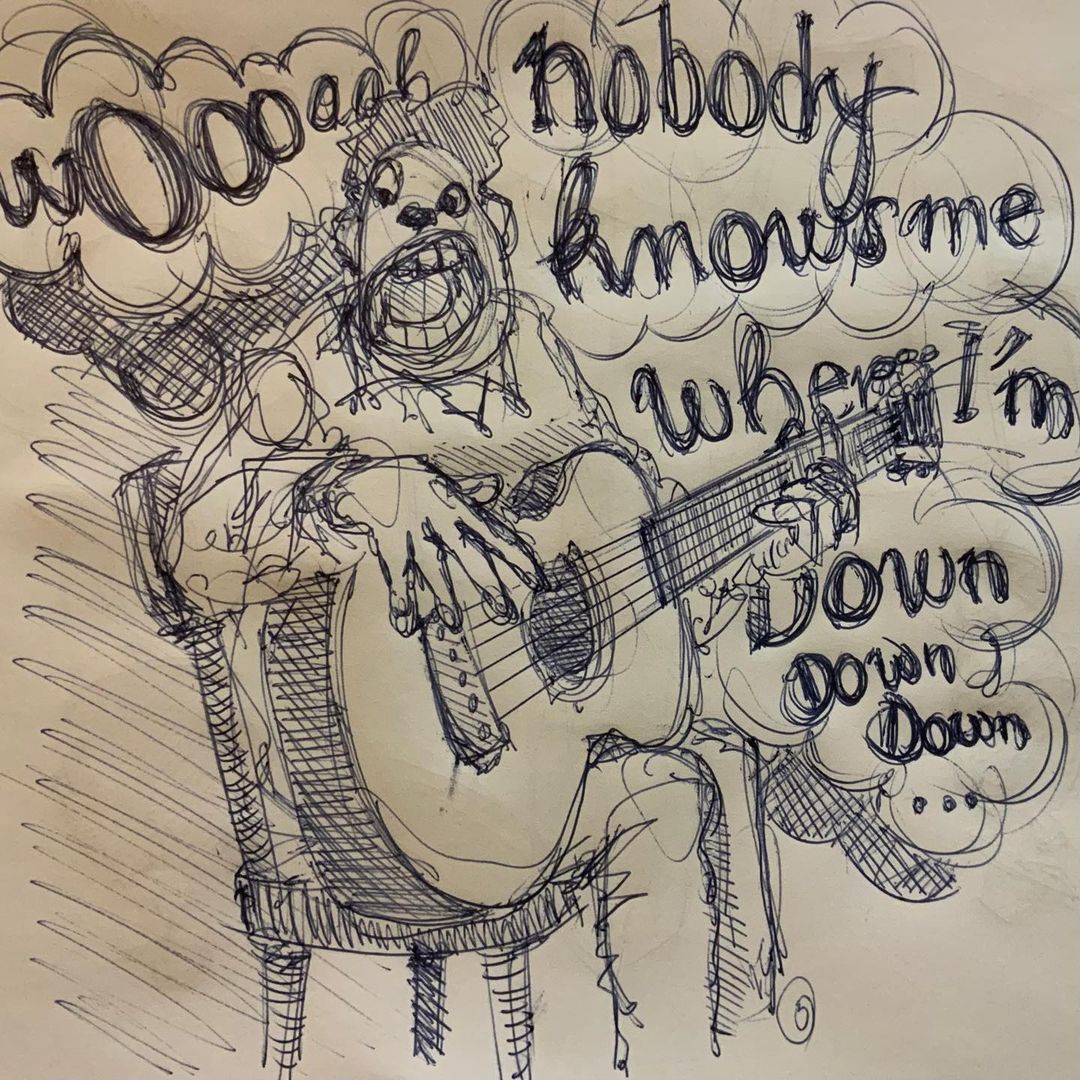 wOooooh
nobody
knows me
When I'm
Down
Down,
Down
...